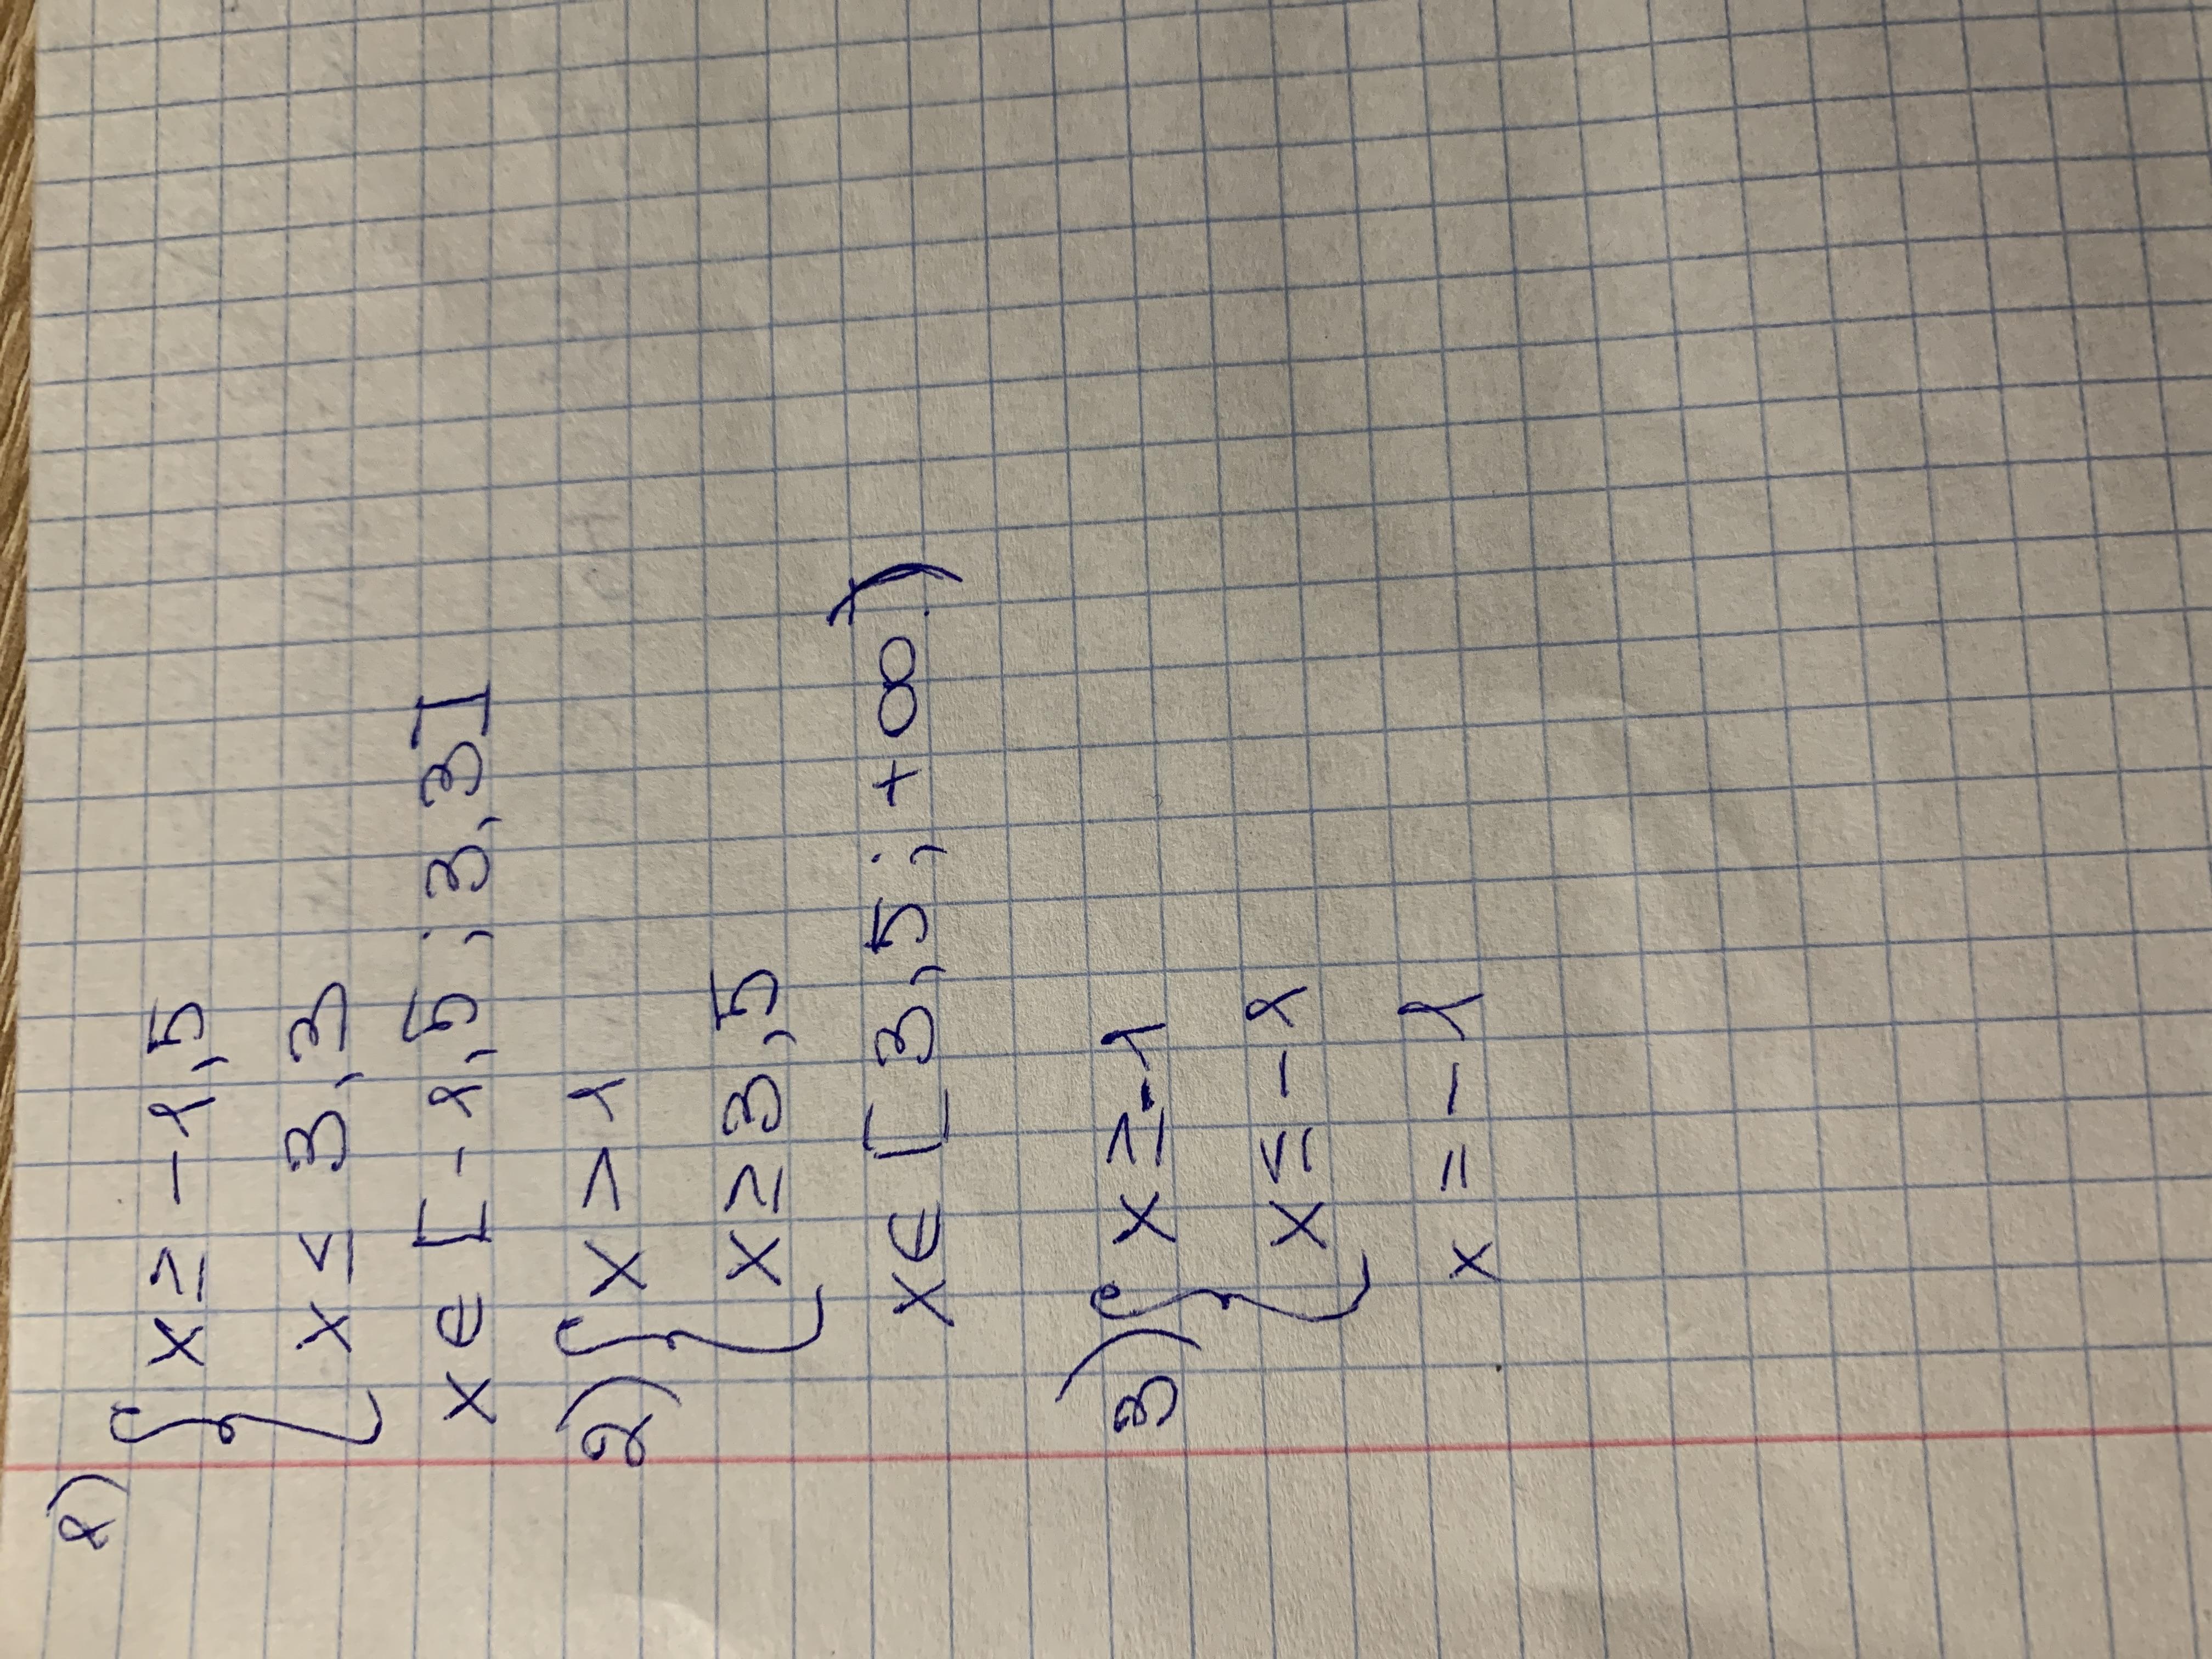 1)
{ x ≥ -1,5
x ≤ 3,3
x ∈ [-1,5; 3,3]
2) { x > 1
x ≥ 3,5
x ∈ [3,5; +∞)
3) { x ≥ -1
x ≤ -1
x = -1